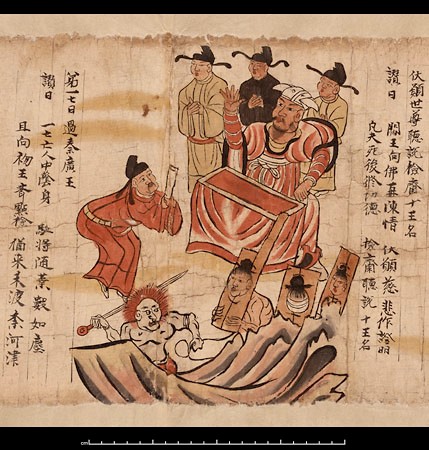 伏願世尊聽說檢齋十王名
讚曰 閻王向佛再陳情 伏願慈悲作證明
凡夫死後修功德 檢齋聽說十王名
第一七日過秦廣王
讚曰 一七亡人中陰身 驅將隨業數如塵
且向初王齊點檢 猶来未渡奈河津
cm